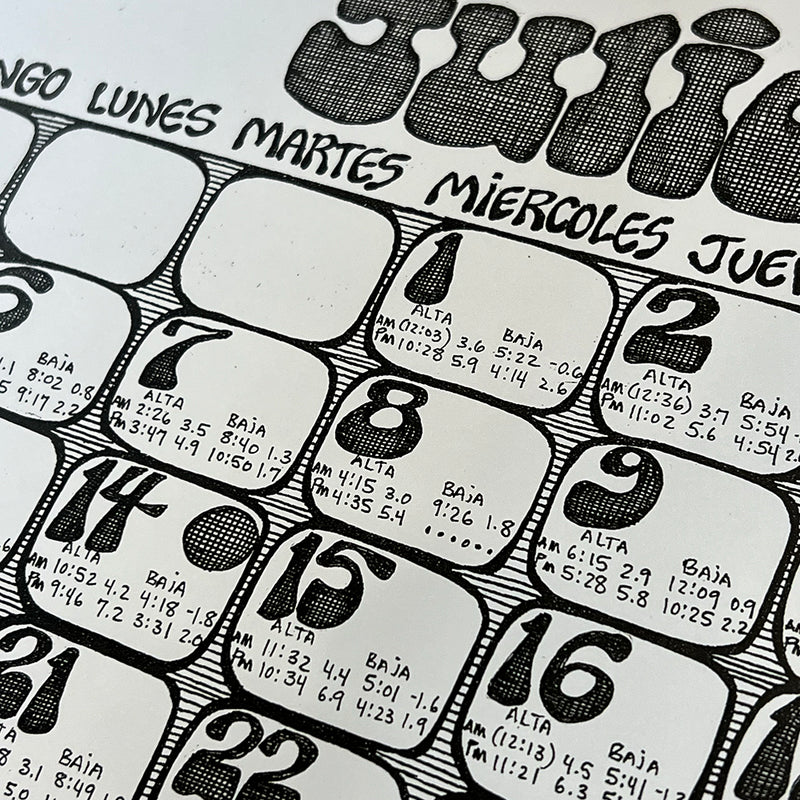 Julio
NGO LUNES MARTES MIERCOLES JUEV
1
ALTA BAJA
AM (12:03) 3.6 5:22 -0.6
PM 10:28 5.9 4:14 2.6
2
ALTA BAJA
AM (12:36) 3.7 5:54 -
PM 11:02 5.6 4:54 2.
6
BAJA
.1 8:02 0.8
5 9:17 2.2
7
ALTA BAJA
AM 2:26 3.5 8:40 1.3
PM 3:47 4.9 10:50 1.7
8
ALTA BAJA
AM 4:15 3.0 9:26 1.8
PM 4:35 5.4 ......
9
ALTA BAJA
AM 6:15 2.9 12:09 0.9
PM 5:28 5.8 10:25 2.2
14
ALTA BAJA
AM 10:52 4.2 4:18 -1.8
PM 9:46 7.2 3:31 2.0
15
ALTA BAJA
AM 11:32 4.4 5:01 -1.6
PM 10:34 6.9 4:23 1.9
16
ALTA BAJA
AM (12:13) 4.5 5:41 -1.2
PM 11:21 6.3 5:
21
TA BAJA
8 3.1 8:49 1.
5.0
22